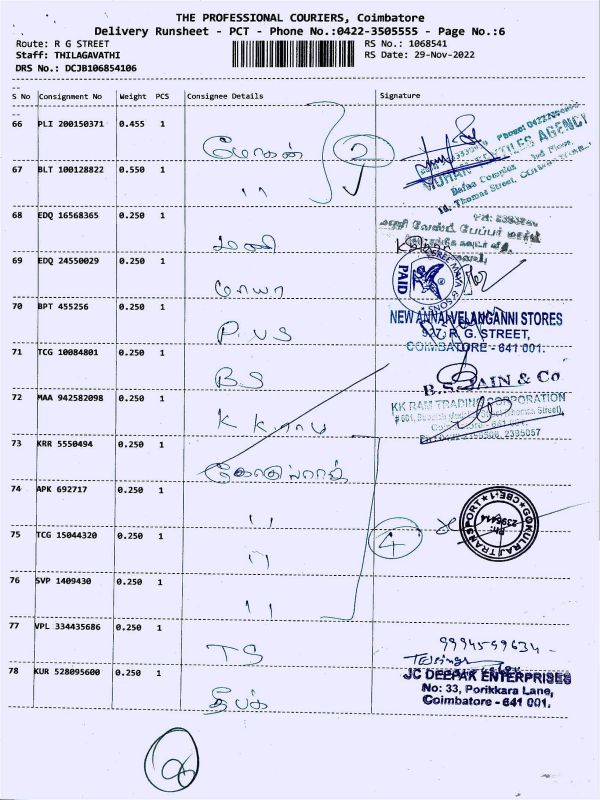 THE PROFESSIONAL COURIERS, Coimbatore
Delivery Runsheet - PCT - Phone No.:0422-3505555 - Page No.:6
Route: R G STREET
RS No.: 1068541
Staff: THILAGAVATHI
RS Date: 29-Nov-2022
DRS No.: DCJB106854106
S No Consignment No Weight PCS Consignee Details Signature
66 PLI 200150371 0.455 1
மோகன் 2
MOHAN TEXTILES AGENCY
Bafna Complex
16, Thomas Street,
67 BLT 100128822 0.550 1
ıı
68 EDQ 16568365 0.250 1
மணி
69 EDQ 24550029 0.250 1
மாயா
PAID
70 BPT 455256 0.250 1
P.V.S
NEW ANNAI VELANGANNI STORES
927, R. G. STREET,
COIMBATORE - 641 001.
71 TCG 10084801 0.250 1
BS
B.S. JAIN & Co
72 MAA 942582098 0.250 1
KK ராம்
KK RAM TRADING CORPORATION
73 KRR 5550494 0.250 1
கோகுல்ராஜ்
74 APK 692717 0.250 1
ıı
GOKULRAJ TRANSPORT
75 TCG 15044320 0.250 1
ıı 4
76 SVP 1409430 0.250 1
ıı
77 VPL 334435686 0.250 1
TS
9994599634
78 KUR 528095600 0.250 1
தீபக்
JC DEEPAK ENTERPRISES
No: 33, Porikkara Lane,
Coimbatore - 641 001.